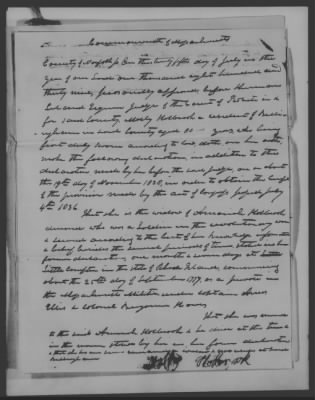 Commonwealth of Massachusetts
County of Norfolk Ss On this twenty fifth day of July in the
year of our Lord one thousand eight hundred and
thirty nine, personally appeared before Sherman
Leland Esquire Judge of the Court of Probate in &
for said County, Molly Holbrook a resident of Bellin-
gham in said County aged 80 years, who being
first duly sworn according to law, doth on her oath,
make the following declaration, in addition to the
declaration made by her before the said Judge, on or about
the 19th day of November 1838, in order to obtain the benefit
of the provision made by the act of Congress passed July
4th 1836
That she is the widow of Holbrook
deceased who was a soldier in the revolutionary war
& served according to the best of her knowledge information
& belief besides the several periods of time stated in her
former declaration, one month & seven days at
Little Compton in the state of Rhode Island, commencing
about the 25th day of September 1777, as a private in
the Massachusetts Militia under Captain Amos
Ellis & Colonel Benjamin Hawes
That she was married
to the said Holbrook & he died at the time &
in the manner stated by her in her former declaration
Molly Holbrook